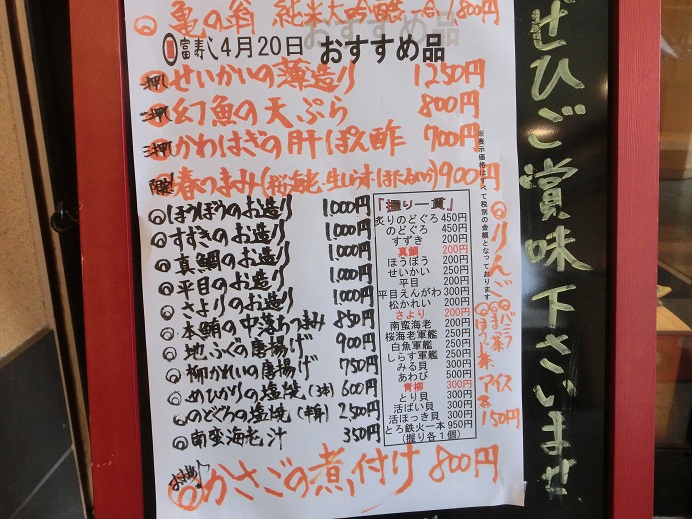 亀の翁 純米大吟醸 一合1800円
富寿し 4月20日 おすすめ品
一押 せいかいの薄造り 1250円
二押 幻魚の天ぷら 800円
三押 かわはぎの肝ぽん酢 700円
春つまみ(桜海老・生しらす・ほたるいか) 900円
ほうぼうのお造り 1,000円
すずきのお造り 1,000円
真鯛のお造り 1,000円
平目のお造り 1,000円
さよりのお造り 1,000円
本鮪の中落ちつまみ 850円
地ふぐの唐揚げ 900円
柳かれいの唐揚げ 750円
めひかりの塩焼(3本) 600円
のどぐろの塩焼(半身) 2500円
南蛮海老汁 350円
かさごの煮付け 800円
『握り一貫』
炙りのどぐろ 450円
のどぐろ 450円
すずき 200円
真鯛 200円
ほうぼう 200円
せいかい 250円
平目 200円
平目えんがわ 300円
松かれい 200円
さより 200円
南蛮海老 200円
桜海老軍艦 250円
白魚軍艦 250円
しらす軍艦 250円
みる貝 300円
あわび 500円
青柳 300円
とり貝 300円
活ばい貝 300円
活ほっき貝 300円
とろ鉄火一本 950円
(握り各1個)
※表示価格はすべて税別の金額となっております
りんご
バニラ
ほうじ茶
アイス
各150円
ぜひご賞味下さいませ